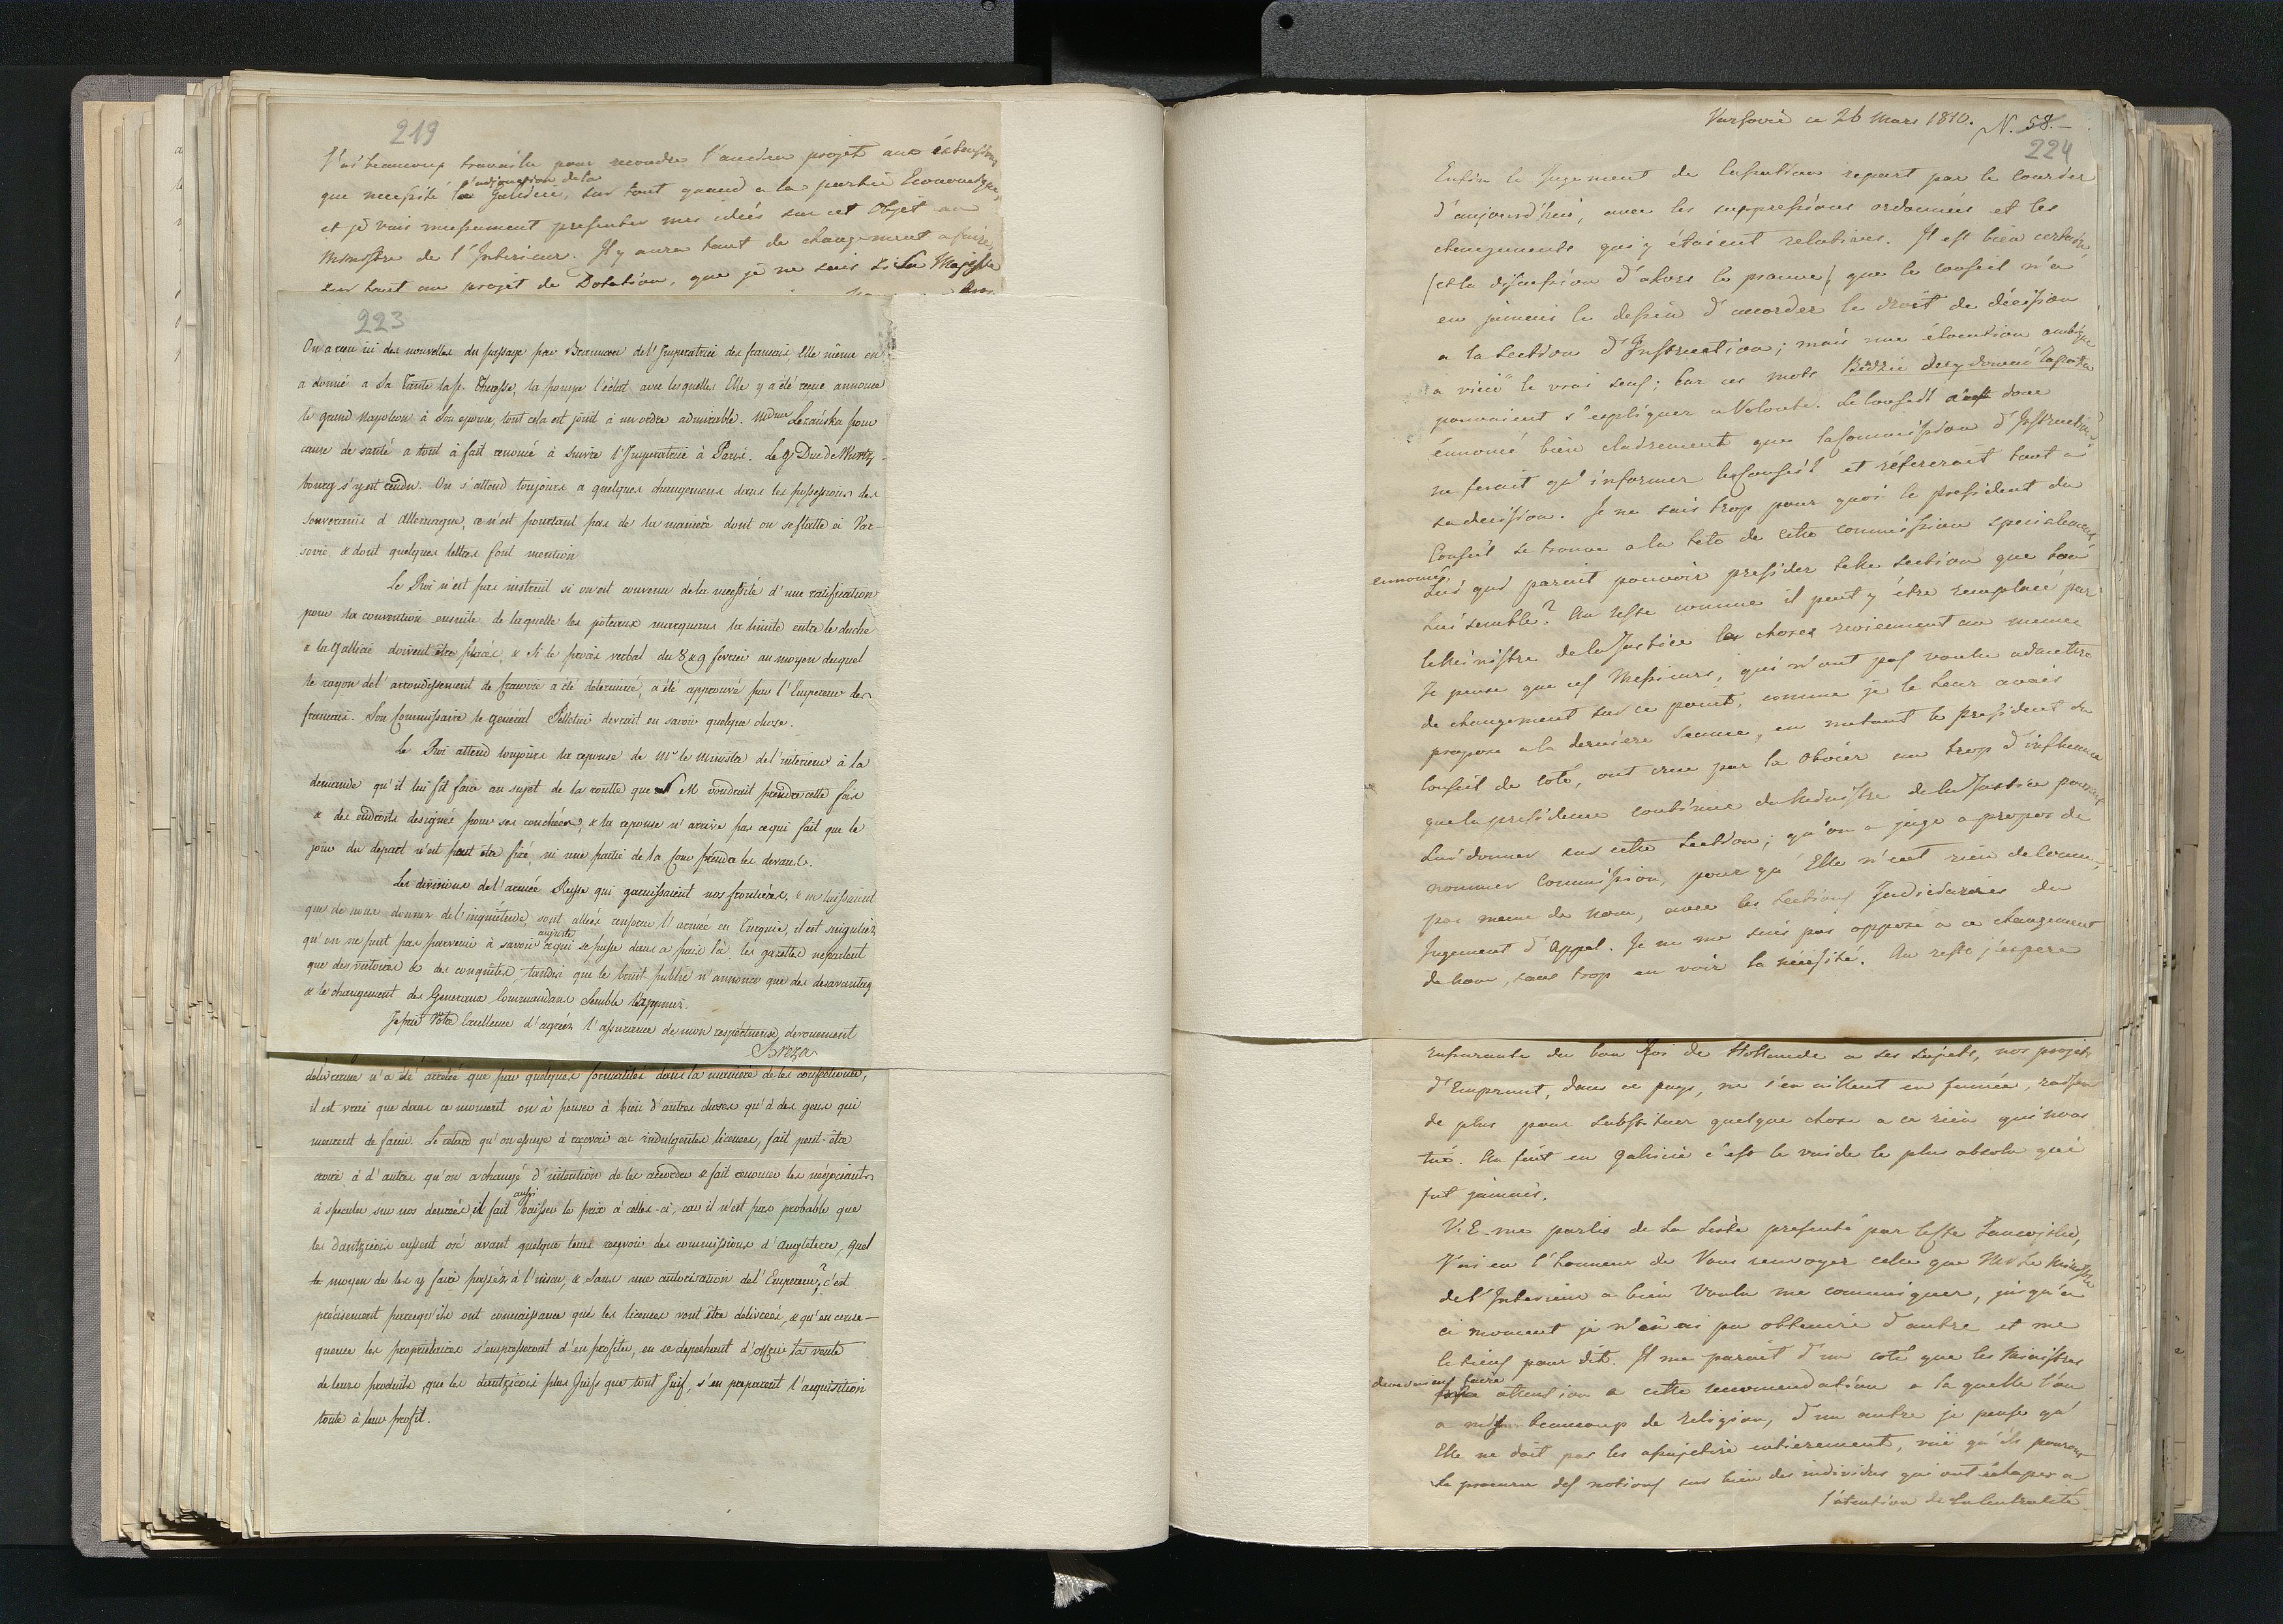 219
J'ai beaucoup travaillé pour recoudre l'ancien projet aux extensions
que necessite l'adjonction de la Galicie, sur tout quand a la partie Economique,
et je vais incessament presenter mes idées sur cet Objet au
Ministre de l'Interieur. Il y aura tant de changement a faire,
sur tout au projet de Dotation, que je ne sais si Sa Majesté
223
On a reçu ici des nouvelles du passage par Braunau de l'Imperatrice des français Elle même en
a donné a Sa Tante la P. Therese, la pompe l'éclat avec lesquelles Elle y a été reçue annonce
le grand Napoleon à Son epouse, tout cela est joint à un ordre admirable. Mdme Lezańska pour
cause de santé a tout à fait renoncé à suivre l'Imperatrice à Paris. Le G Duc de Wurtz-
bourg s'y est rendu. On s'attend toujours a quelques changemens dans les possessions des
souverains d'Allemagne, ce n'est pourtant pas de la maniere dont on se flatte à Var-
sovie & dont quelques lettres font mention
Le Roi n'est pas instruit si on est convenu de la necessité d'une ratification
pour la convention ensuite de laquelle les poteaux marquans la limite entre le duché
& la Gallicie doivent être placés, & si le procès verbal du 8 & 9 fevrier au moyen duquel
le rayon de l'arrondissement de Cracovie a été déterminé, a été approuvé par l'Empereur des
français. Son Commissaire le général Pelletier devrait en savoir quelque chose.
Le Roi attend toujours la reponse de Mr le Ministre de l'interieur à la
demande qu'il lui fit faire au sujet de la routte que S M voudrait prendre cette fois
& des endroits designés pour ses couchées, & la reponse n'arrive pas ce qui fait que le
jour du depart n'est peut être fixé, ni une partie de la Cour prendre les devants.
Les divisions de l'armée Russe qui garnissaient nos frontières, & ne laissaient
que de nous donner de l'inquiétude, sont allées renforcer l'armée en Turquie, il est singulier,
qu'on ne peut pas parvenir à savoir au juste ce qui se passe dans ce pais là, les gazettes ne parlent
que des victoires & des conquêtes, tandis que le bruit public n'annonce que des desavantag
& le changement des Generaux Commandans semble l'appuyer.
Je prie Votre Excellence d'agréer l'assurance de mon respectueux devouement
Breza
delivrance n'a été arretée que par quelques formalités dans la maniere de les confectioner,
il est vrai que dans ce moment on à penser à bien d'autres choses qu'à des gens qui
meurent de faim. Le retard qu'on essuye à reçevoir ces indulgentes licences, fait peut-être
croire à d'autres qu'on a changé d'intention de les accorder & fait renoncer les négociants
à speculer sur nos denrées, il fait aussi baisser le prix à celles-ci, car il n'est pas probable que
les dantzicois eussent osé avant quelque tems reçevoir des commissions d'Angleterre, quel
le moyen de les y faire passer à l'insçu, & sans une autorisation de l'Empereur? c'est
précisement parcequ'ils ont connaissance que les licences vont être delivrées, & qu'en conse-
quence les proprietaires s'empresseront d'en profiter, en se depechant d'offrir la vente
de leurs produits, que les dantzicois plus Juifs que tout Juif, s'en preparent l'acquisition
toute à leur profit.
Varsovie ce 26 Mars 1810. N. 58.-
224
Enfin le Jugement de Cassation repart par le courier
d'aujourd'hui, avec les suppressions ordonnées et les
changements qui y étaient relatives. Il est bien certain
(et la discussion d'alors le prouve) que le conseil n'a
eu jamais le dessein d'accorder le droit de décision
a la Section d'Instruction; mais une élocution ambigue
a vicié le vrai sens; Car ces mots
pouvaient s'expliquer a Volonté. Le Conseil a donc
énnoncé bien clairement que la Commission d'Instruction
ne ferait qu'informer le Conseil et réfererait tout a
sa decision. Je ne sais trop pour quoi le president du
Conseil se trouve a la tete de cette commission specialement
ennoncé,
Lui qui parait pouvoir presider telle section que bon
lui semble? Au reste comme il peut y être remplacé par
le Ministre de la Justice les choses reviennent au meme
Je pense que ces Messieurs, qui n'ont pas voulu admettre
de changement sur ce point, comme je le leur avais
proposé a la derniere seance, en mettant le president du
Conseil de coté, ont crue par la obvier au trop d'influence
que la presidence continue du Ministre de la Justice pourrait
lui donner sur cette Section; qu'on a jugé a propos de
nommer Commission, pour qu'Elle n'eut rien de comun,
pas meme de nom, avec les Sections Judiciaires du
Jugement d'Appel. Je ne me suis pas opposé a ce changement
de nom, sans trop en voir la nécessité. Au reste j'espere
du bon Roi de Hollande a ses sujets, nos projets
d'Emprunt, dans ce pays, ne s'en aillent en fumée, raison
de plus pour substituer quelque chose a ce rien qui nous
tue. Au fait en Galicie c'est le vuide le plus absolu qui
fut jamais.
V. E. me parlés de la Liste presenté par le Cte Zamoyski,
J'ai eu l'honneur de Vous renvoyer celle que Mr Le Ministre
de l'Interieur a bien voulu me communiquer, jusqu'a
ce moment je n'en ai pu obtenir d'autre et me
le tiens pour dit. Il me parait d'un coté que les Ministres
devraient faire attention a cette recomendation a la quelle l'on
a mis beaucoup de religion, d'un autre je pense qu'
Elle ne doit pas les assujetire entierement, vue qu'ils pourons
se procurer des notions sur bien des individus qui ont échapés a
l'attention de la Centralité